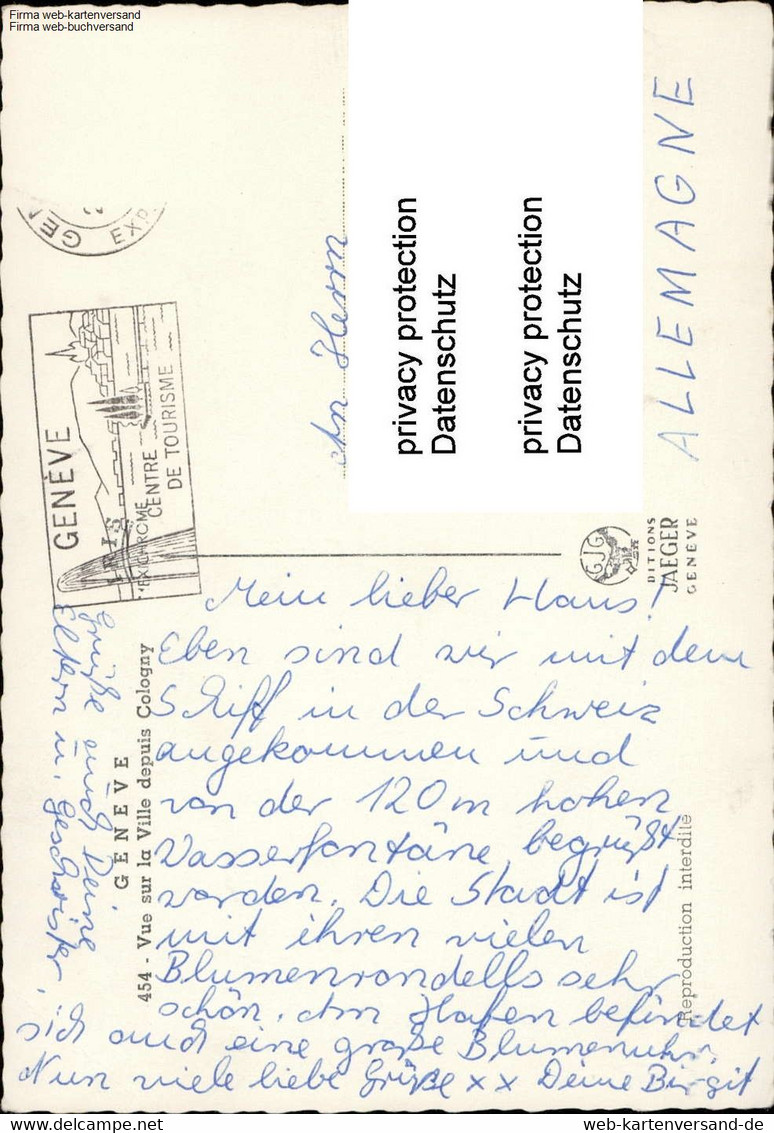 Firma web-kartenversand
Firma web-buchversand
GEN
EXP
GENÈVE
CENTRE
DE TOURISME
An Herrn
privacy protection
Datenschutz
privacy protection
Datenschutz
ALLEMAGNE
GJG
DITIONS
JAEGER
GENEVE
GENEVE
454 - Vue sur la Ville depuis Cologny
Reproduction interdite
Mein lieber Hans!
Eben sind wir mit dem
Schiff in der Schweiz
angekommen und
von der 120 m hohen
Wasserfontäne begrüßt
worden. Die Stadt ist
mit ihren vielen
Blumenrondells sehr
schön. Am Hafen befindet
sich auch eine große Blumenuhr.
Nun viele liebe Grüße x x Deine Birgit
Grüße auch Deine
Eltern u. Geschwister.
www.web-kartenversand-de